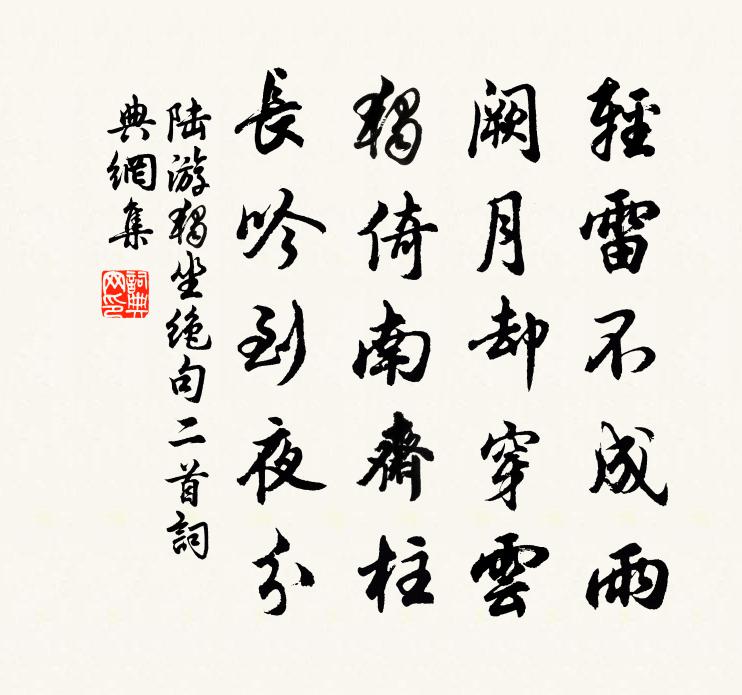 輕雷不成雨
闕月却穿雲
獨倚南齋柱
長吟到夜分
陸游獨坐絶句二首詞
典網集
詞典網印